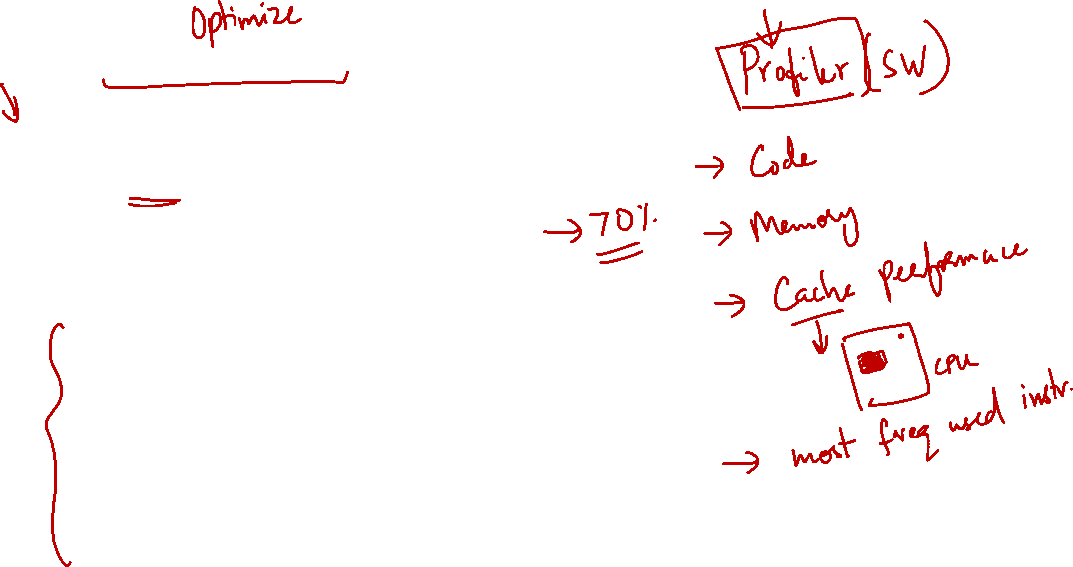 Optimize
Profiler (SW)
→ Code
→ 70% → Memory
→ Cache performace
CPU
→ most freq used instr.